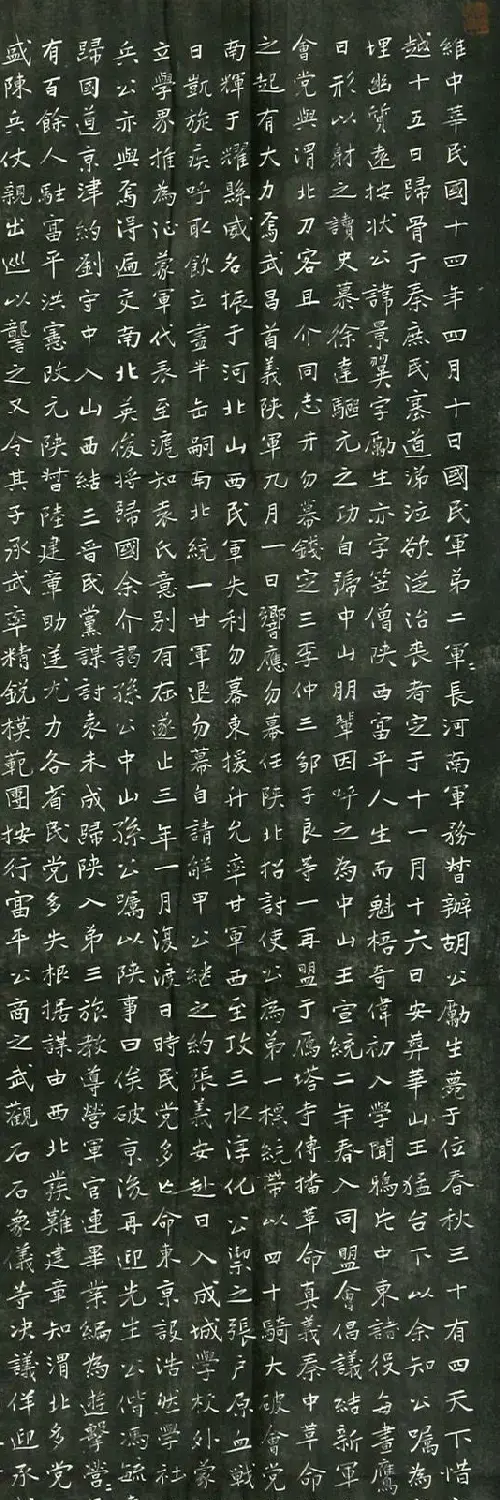 維中華民國十四年四月十日國民軍弟二軍長河南軍務督辦胡公勵生薨于位春秋三十有四天下惜
越十五日歸骨于秦庶民塞道涕泣欲從治喪者定于十一月十六日安葬華山王猛台下以余知公嘱為
埋幽質遠按狀公諱景翼字勵生亦字笠僧陝西富平人生而魁梧奇偉初入學聞鴉片中東諸役每畫鷹
日形以射之讀史慕徐達驅元之功自號中山朋輩因呼之為中山王宣統二年春入同盟會倡議結新軍
會党與渭北刀客且介同志井勿幕錢定三李仲三鄒子良等一再盟于雁塔寺傳播革命真義秦中革命
之起有大力焉武昌首義陝軍九月一日響應勿幕任陝北招討使公為第一標統帶以四十騎大破會党
南輝于耀縣威名振于河北山西民軍失利勿幕東援升允率甘軍西至攻三水淳化公禦之張戶原血戰
日凱旋疾呼取飲立盡半缶嗣南北統一甘軍退勿幕自請解甲公継之約張義安赴日入成城學校外蒙
立學界推為征蒙軍代表至滬知袁氏意別有在遂止三年一月復渡日時民党多亡命東京設浩然學社
兵公亦與焉得遍交南北英俊将歸國余介謁孫公中山孫公嘱以陝事曰俟破京後再迎先生公偕馮毓
歸國道京津約劉守中入山西結三晉民黨謀討袁未成歸陝入弟三旅教導營軍官連畢業編為遊擊營
有百餘人駐富平洪憲改元陝督陸建章助逆尤力各省民党多失根据謀由西北發難建章知渭北多党
盛陳兵仗親出巡以讋之又令其子承武率精鋭模範團按行富平公商之武觀石石象儀等决議佯迎承